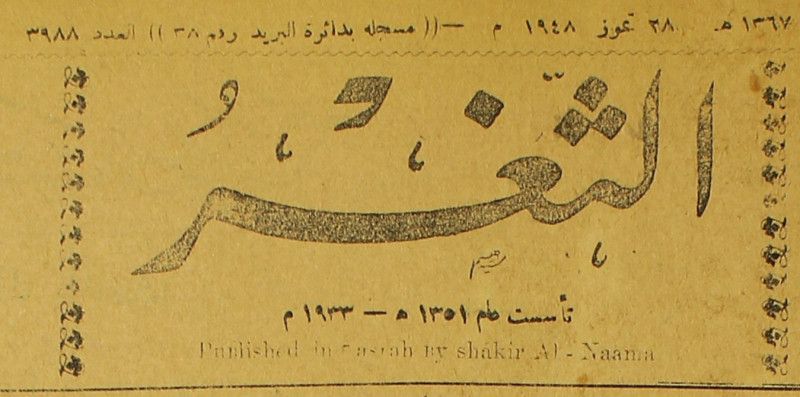 ١٣٦٧ هـ ٢٨ تموز ١٩٤٨ م —(( مسجله بدائرة البريد رقم ٣٨ )) العدد ٣٩٨٨
الثَّغْرُ
تأسست عام ١٣٥١ ه — ١٩٣٣ م
Published in Basrah by shakir Al - Naama